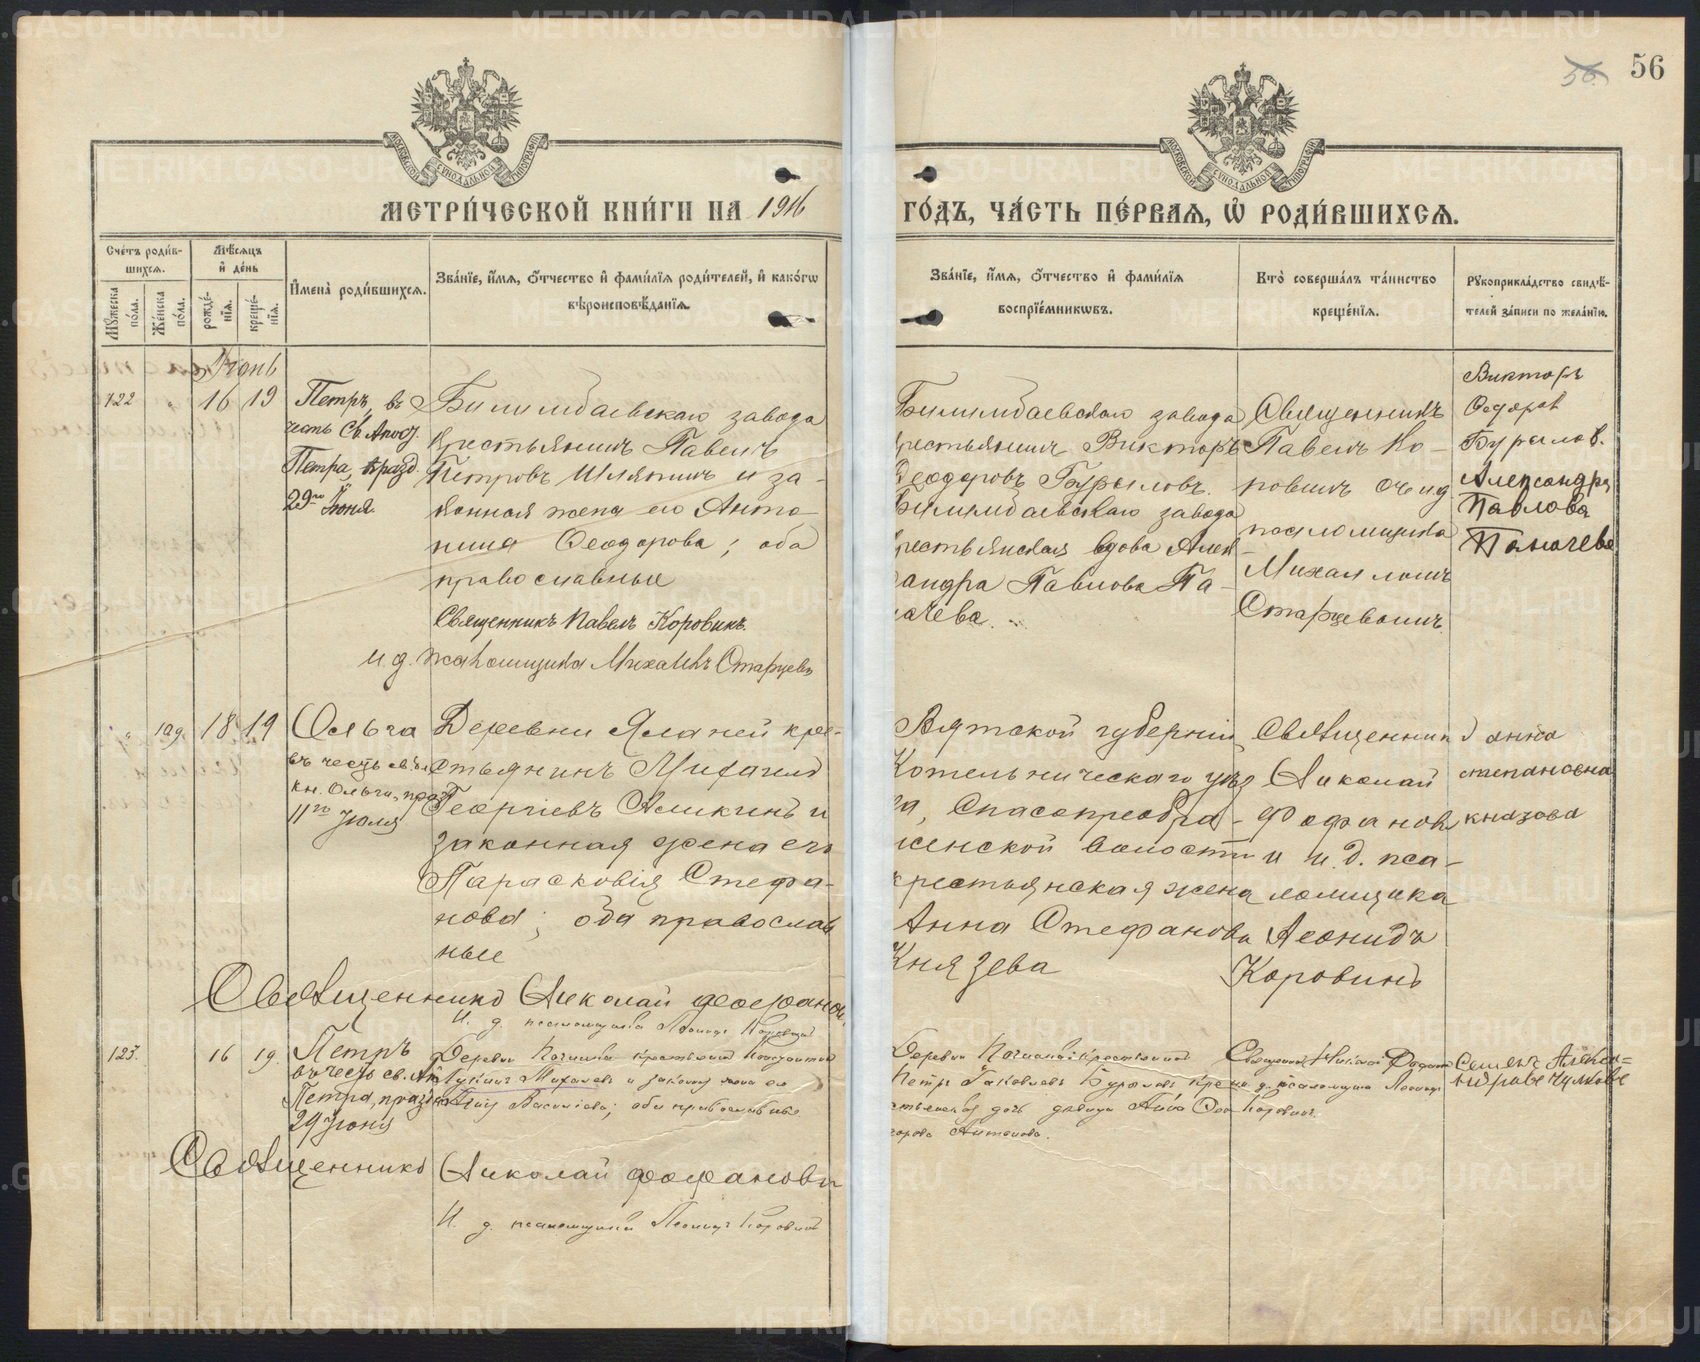 56
56
МОСКОВСКОЙ СѴНОДАЛЬНОЙ ТИПОГРАФІИ
МОСКОВСКОЙ СѴНОДАЛЬНОЙ ТИПОГРАФІИ
МЕТРИ́ЧЕСКОЙ КНИ́ГИ НА 1916
ГО́ДЪ, ЧА́СТЬ ПЕ́РВАЯ, Ѡ҆ РОДИ́ВШИХСЯ.
Сче́тъ роди́в-
шихся.
Мꙋжеска по́ла.
Же́нска по́ла.
Мѣ́сяцъ
и҆ де́нь
рожде́-
нїя.
креще́-
нїя.
И҆мена̀ роди́вшихся.
Зва́нїе, и҆́мя, ѻ҆́тчество и҆ фами́лїя роди́телей, и҆ како́гѡ
вѣроисповѣ́данїя.
Зва́нїе, и҆́мя, ѻ҆́тчество и҆ фами́лїя
воспрїе́мникѡвъ.
Кто̀ соверша́лъ та́инство
креще́нїя.
Рꙋкоприкла́дство свидѣ́-
телей за́писи по жела́нїю.
Іюнь
122 " 16 19
Петръ, въ
честь Св. Апост.
Петра, празд.
29го Іюня.
Билимбаевскаго завода
крестьянинъ Павелъ
Петровъ Шляпинъ и за-
конная жена его Анто-
нина Ѳеодорова; оба
православные
Священникъ Павелъ Коровинъ.
И. д. псаломщика Михаилъ Старцевъ
Билимбаевскаго завода
крестьянинъ Викторъ
Ѳеодоровъ Бурыловъ.
Билимбаевскаго завода
крестьянская вдова Алек-
сандра Павлова Па-
ачева.
Священникъ
Павелъ Ко-
ровинъ с и д
псаломщика
Михаиломъ
Старцевымъ.
Викторъ
Федоров
Бурылов.
Александра
Павлова
" 109. 18 19
Ольга
въ честь св. бл.
кн. Ольги, празд.
11го Іюля
Деревни Яланей кре-
стьянинъ Михаилъ
Георгіевъ Аликинъ и
законная жена его
Парасковія Стефа-
нова; оба православ
ные
Священникъ Николай Феофановъ
И. д. псаломщика Леонидъ Коровинъ
Вятской губерніи,
Котельническаго уѣз
да, Спасопреобра-
женской волости
крестьянская жена
Анна Стефанова
Князева
Священникъ
Николай
Фофановъ
и и. д. пса-
ломщика
Леонидъ
Коровинъ
анна
степановна
князова
123. 16 19.
Петръ
въ честь св. Ап.
Петра, празд.
29го Іюня
Деревни крестьянинъ Константинъ
Лукинъ Михалевъ и законная жена его
Васильева; оба православные.
Священникъ Николай Фофановъ
И. д. псаломщика Леонидъ Коровинъ
Деревни крестьянинъ
Петръ Яковлевъ Бурыловъ кре
стьянская дочь дѣвица Анна Ѳео
дорова Антонова.
Священникъ Николай Фофановъ
и. д. псаломщика Леонидъ
Коровинъ.
Семенъ Алекса=
ндровъ Чулковъ